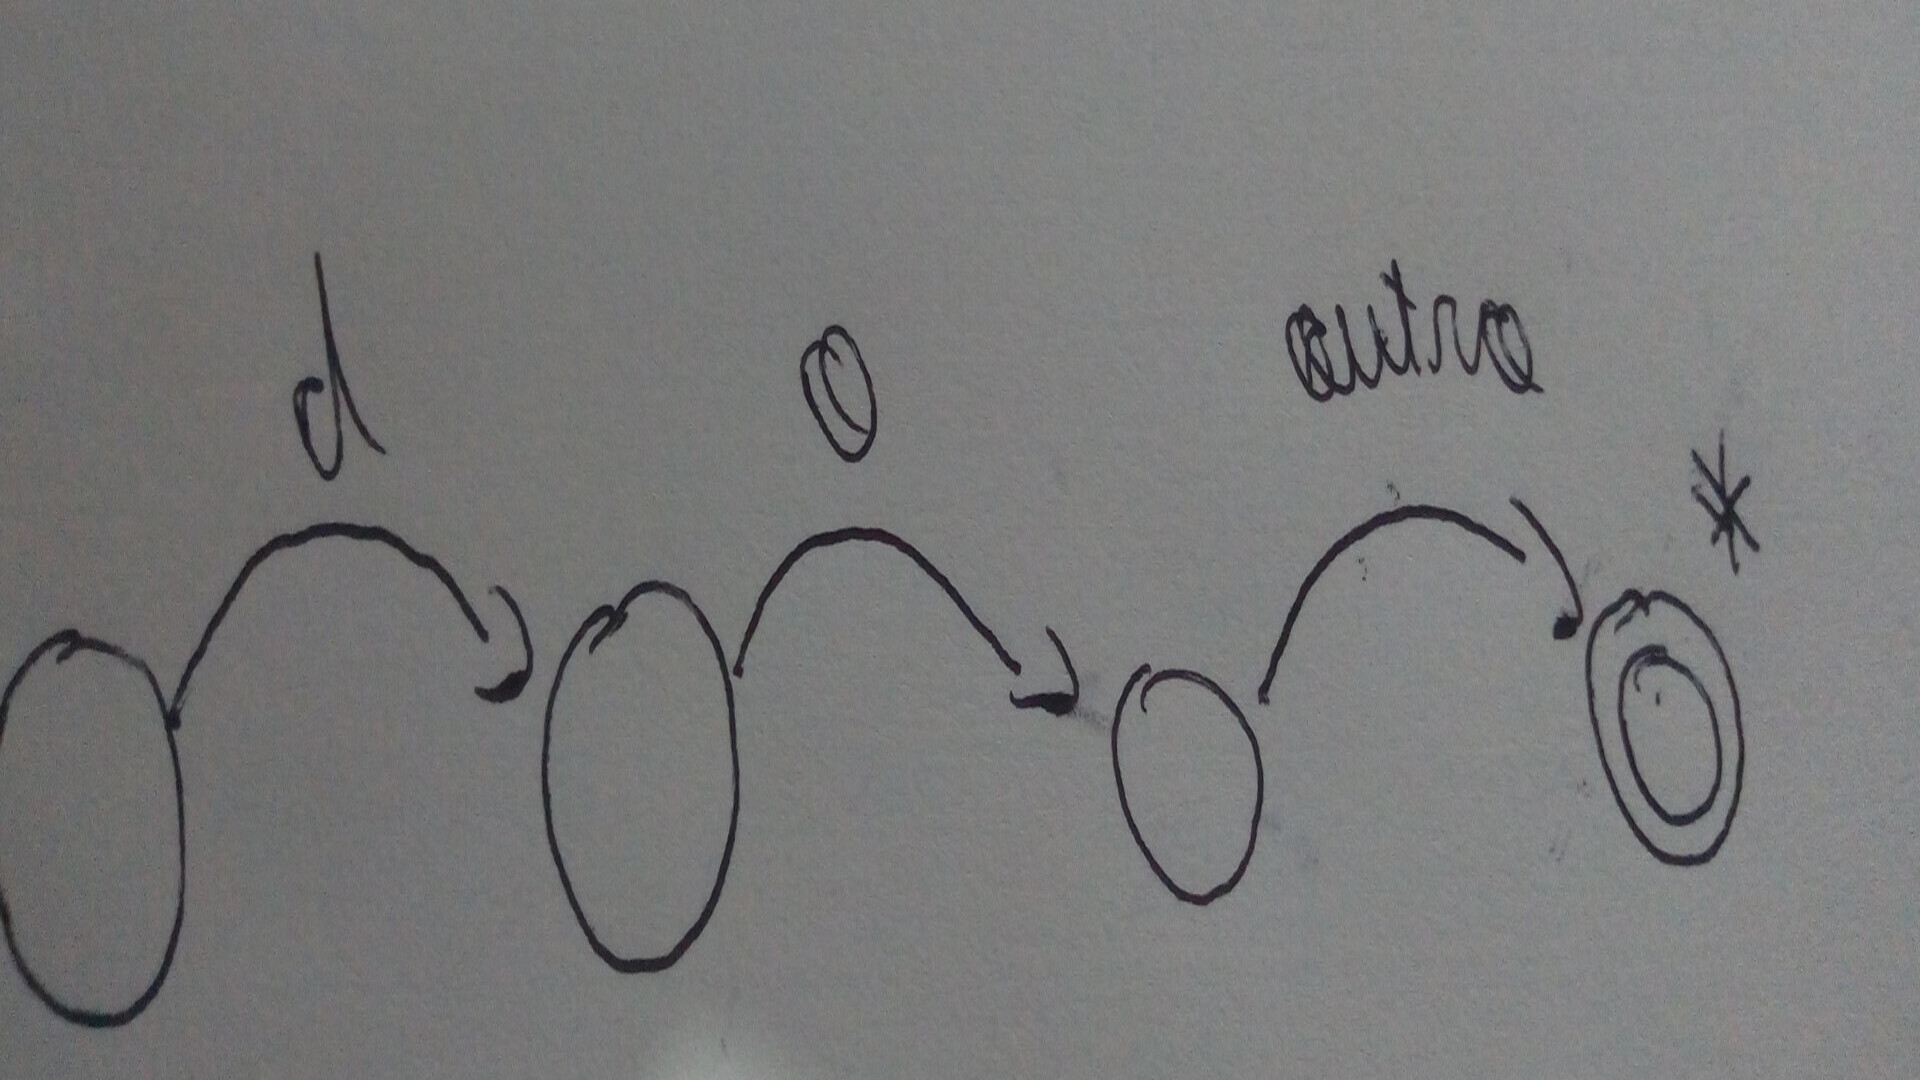 d o outro
*